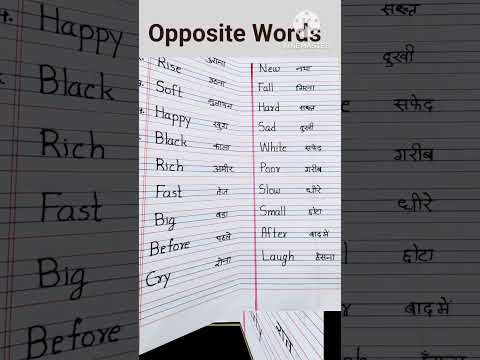 Opposite Words
KINEMASTER
पुराना New नया
Rise उठना Fall गिरना
Soft मुलायम Hard सख्त
Happy खुश Sad दुखी
Black काला White सफेद
Rich अमीर Poor गरीब
Fast तेज Slow धीरे
Big बड़ा Small छोटा
Before पहले After बाद में
Cry रोना Laugh हँसना
Happy
Black
Rich
Fast
Big
Before
सख्त
दुखी
सफेद
गरीब
धीरे
छोटा
बाद में